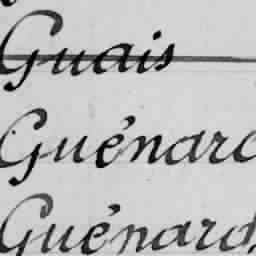 Guais
Guénard
Guénard